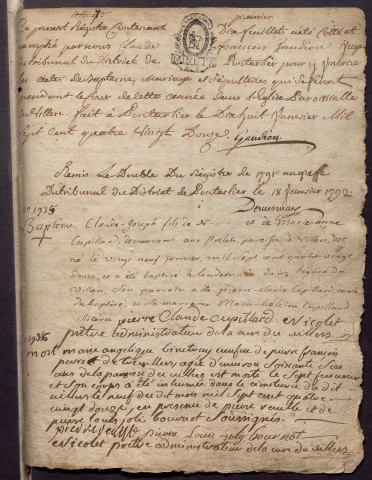 premier
Le present Registre Contenant Dix feuillets a été Cotté et
paraphé par nous Claude françois Gaudion Juge
du tribunal du District de Pontarlier pour y Inscrire
les actes de Baptemes, Mariages et Sépultures qui se feront
pendant le cour de cette année dans l'Eglise Paroissialle
de Villers. fait à Pontarlier le Dix huit Janvier Mil
Sept cent quatre Vingt Douze. Gaudion
Remis Le Double Du Registre de 1791 au greffe
Du tribunal du District de Pontarlier le 18 1792
Baptême Claude-Joseph fils de et de Marie-anne
Cupillard, demeurans aux paroisse de Villers est
né le vingt neuf janvier, mil sept cent quatre vingt
Douze, et a été baptisé le lendemain dans l'église de
Villers, Son parrain a été pierre-claude Cupillard, oncle
du baptisé, et la marraine Marie-helene Cupillard
illitérée pierre Claude Cupillard Nicolet
prêtre administrateur de la cure du villers
mort marie angelique veuve de pierre françois
perret de villers, agée d'environ Soixante Seize
ans de la paroisse de villers est morte le Sept fevrier
et Son corps a été inhumé dans le cimetiere du dit
villers le neuf du dit mois mil Sept cent quatre
vingt douze, en presence de pierre et de
pierre louis joli bournot Soussignés.
pierre pierre Louis joly bournot
Nicolet prêtre administrateur de la cure du villers